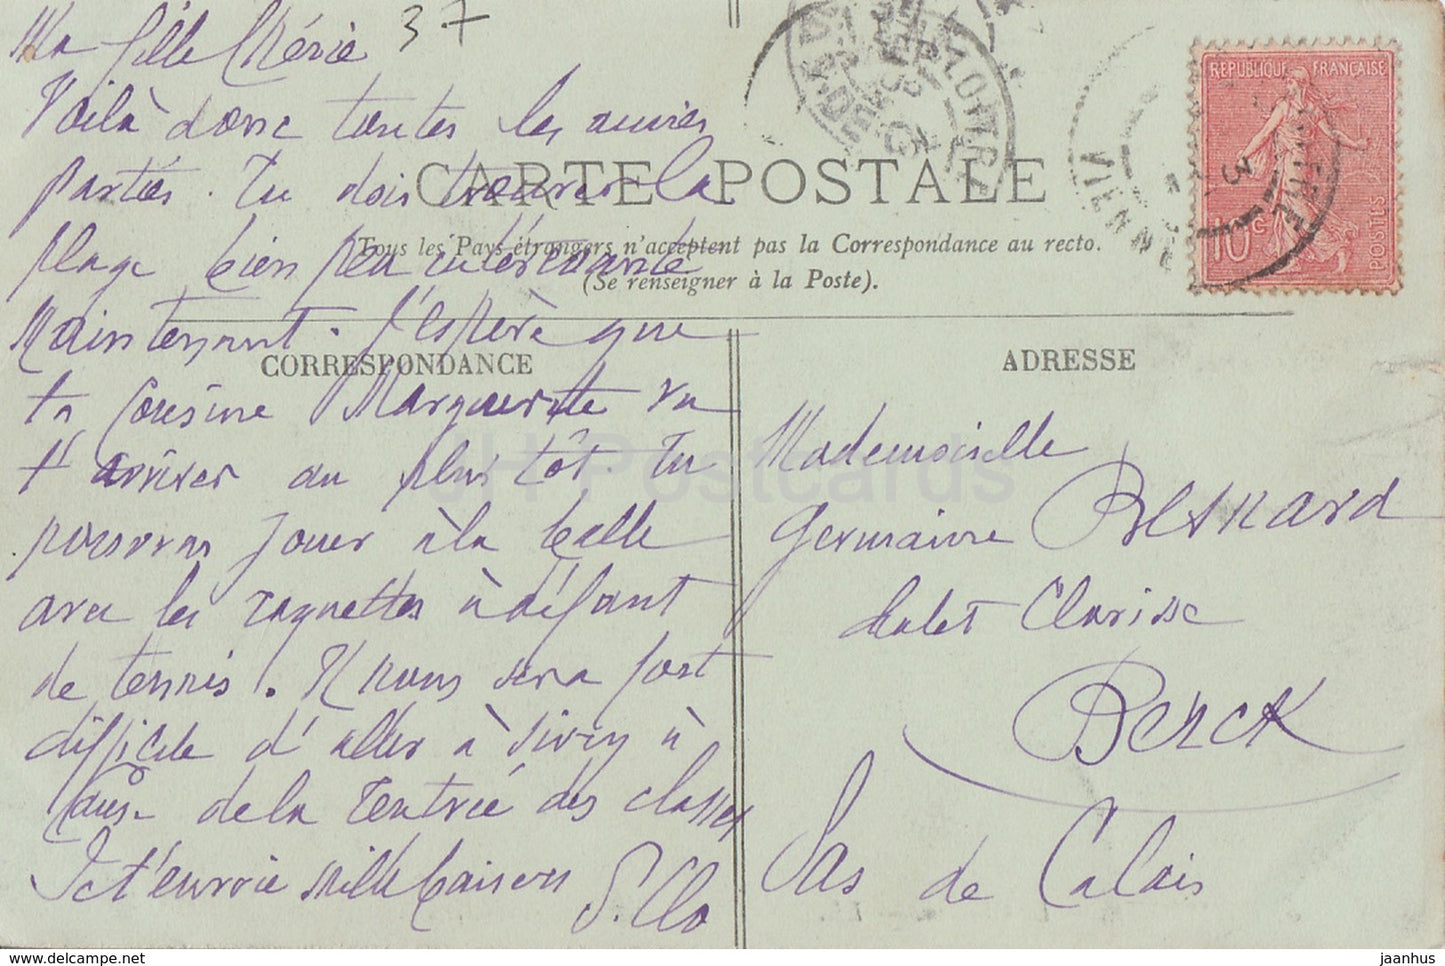 Ma fille Chérie
37
Voilà donc toutes les amies
parties. Tu dois trouver la
plage bien peu intéressante
Maintenant. J'espère que
ta Cousine Marguerite va
t'arriver au plus tôt. Tu
pourras jouer à la balle
avec les raquettes à défaut
de tennis. Il nous sera fort
difficile d'aller à Sivry à
Cause de la rentrée des classes
Je t'envoie mille baisers
CARTE POSTALE
Tous les Pays étrangers n'acceptent pas la Correspondance au recto.
(Se renseigner à la Poste).
CORRESPONDANCE
ADRESSE
REPUBLIQUE FRANÇAISE
10c
POSTES
VIENNE
Mademoiselle
Germaine Besnard
chalet Clarisse
Berck
Pas de Calais
JH Postcards
delcampe.net
jaanhus